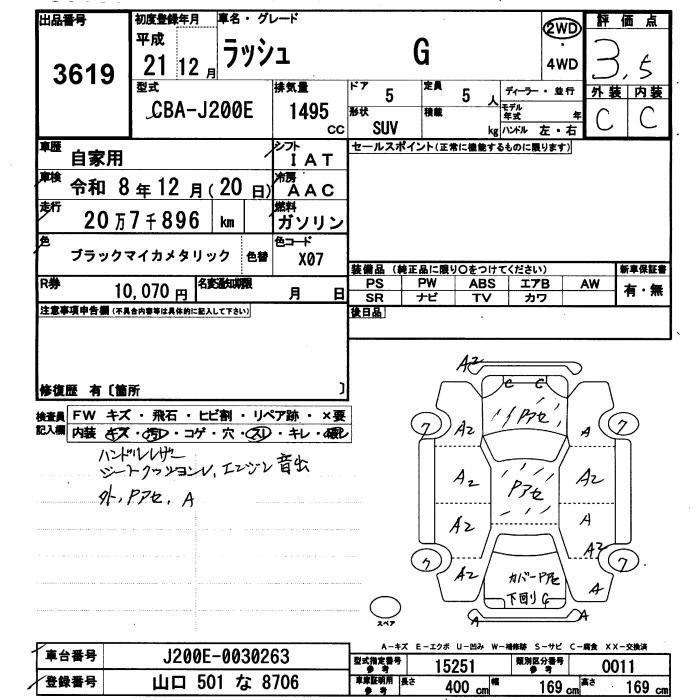 出品番号
3619
初度登録年月
平成
21 12 月
車名・グレード
ラッシュ G
2WD
・
4WD
評価点
3.5
外装 内装
C C
型式
CBA-J200E
排気量
1495
CC
ドア
5
定員
5 人
形状
SUV
積載
kg
ディーラー・並行
モデル
年式 年
ハンドル 左・右
車歴
自家用
シフト
IAT
車検
令和 8 年 12 月 (20 日)
冷房
AAC
走行
20 万 7 千 896 km
燃料
ガソリン
色
ブラックマイカメタリック
色替
色コード
X07
R券
10,070 円
名変通知期限
月 日
注意事項申告欄(不具合内容等は具体的に記入して下さい)
修復歴 有〔箇所 〕
セールスポイント(正常に機能するものに限ります)
装備品 (純正品に限り〇をつけてください)
PS PW ABS エアB AW
SR ナビ TV カワ
新車保証書
有・無
後日品
検査員
記入欄
FW キズ・飛石・ヒビ割・リペア跡・×要
内装 キズ・汚レ・コゲ・穴・スレ・キレ・破レ
ハンドルレザー
エンジン音出
外、Pアセ、A
A2
C C
Pアセ
ワ A2 A ワ
A2 Pアセ A2
A2 A
A2
ワ A2 カバーPアセ A ワ
下回りC
A A
スペア
A-キズ E-エクボ U-凹み W-補修跡 S-サビ C-腐食 XX-交換済
車台番号
J200E-0030263
登録番号
山口 501 な 8706
型式指定番号
参考
15251
類別区分番号
参考
0011
車庫証明用
参考
長さ
400 cm
幅
169 cm
高さ
169 cm